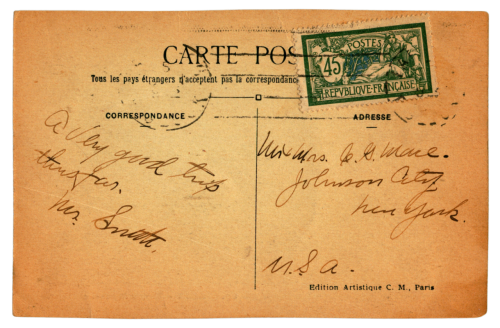 CARTE POS
Tous les pays étrangers n'acceptent pas la correspondanc
POSTES
45
REPVBLIQVE FRANÇAISE
CORRESPONDANCE
ADRESSE
A very good trip
thus far.
Mr. Smith.
Mr & Mrs.
Johnson City
New York.
U.S.A.
Edition Artistique C. M., Paris